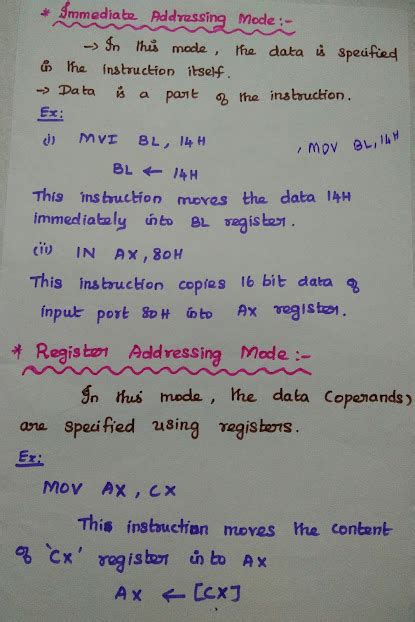 * Immediate Addressing Mode :-
→ In this mode, the data is specified
in the instruction itself.
→ Data is a part of the instruction.
Ex:
(i) MVI BL, 14H , MOV BL, 14H
BL ← 14H
This instruction moves the data 14H
immediately into BL register.
(ii) IN AX, 80H
This instruction copies 16 bit data of
input port 80H into AX register.
* Register Addressing Mode :-
In this mode, the data (operands)
are specified using registers.
Ex:
MOV AX, CX
This instruction moves the content
of 'CX' register into AX
AX ← [CX]